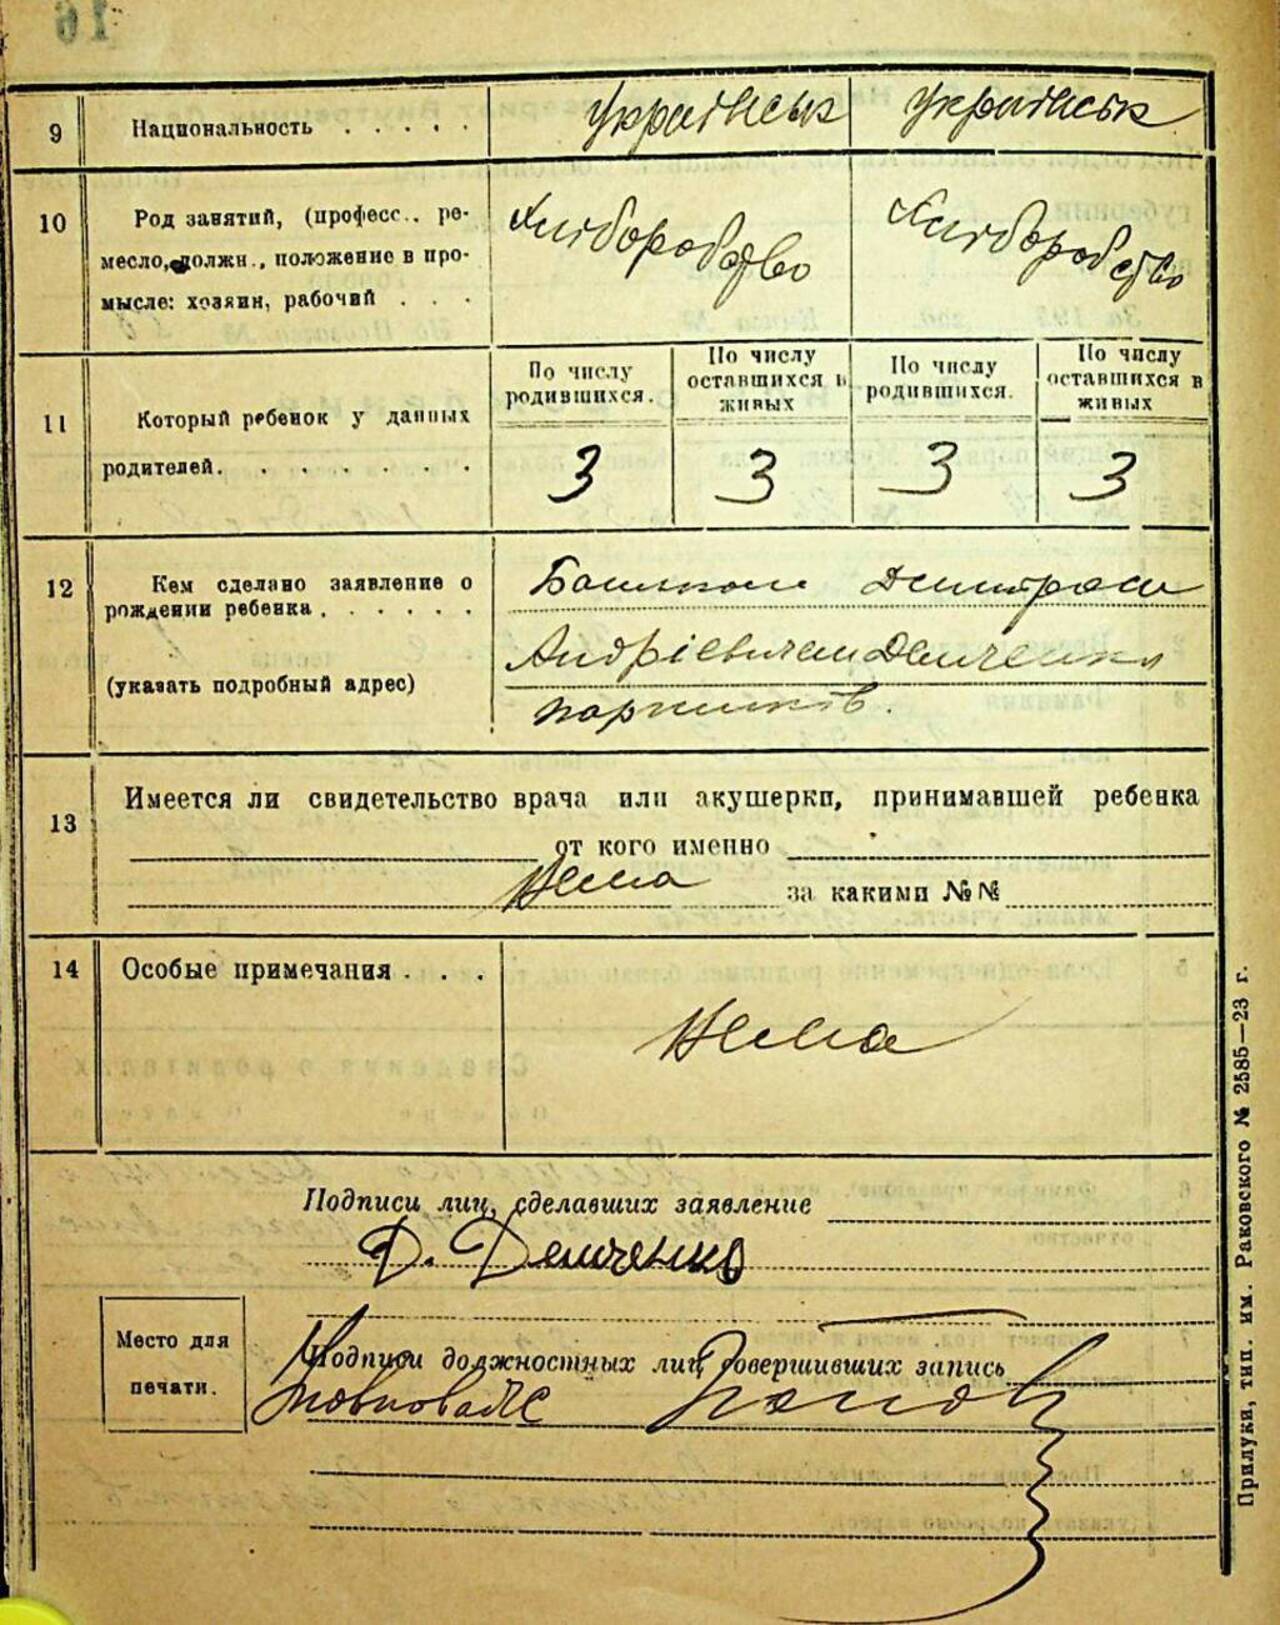 16
9 Национальность . . . . . Українськ Українськ
10 Род занятий, (професс.. ре-
месло, должн., положение в про-
мысле: хозяин, рабочий . . .
Хлiборобство Хлiборобство
11 Который ребенок у данных
родителей. . . . . . .
По числу
родившихся.
По числу
оставшихся в
живых
По числу
родившихся.
По числу
оставшихся в
живых
3 3 3 3
12 Кем сделано заявление о
рождении ребенка . . . . . .
(указать подробный адрес)
Батьком Дмитром
Андрiевичем Демченко
13 Имеется ли свидетельство врача или акушерки, принимавшей ребенка
от кого именно
Нема за какими №№
14 Особые примечания . . .
Нема
Подписи лиц, сделавших заявление
Д. Демченко
Место для
печати.
Подписи должностных лиц, совершивших запись
Прилуки, тип. им. Раковского № 2585—23 г.